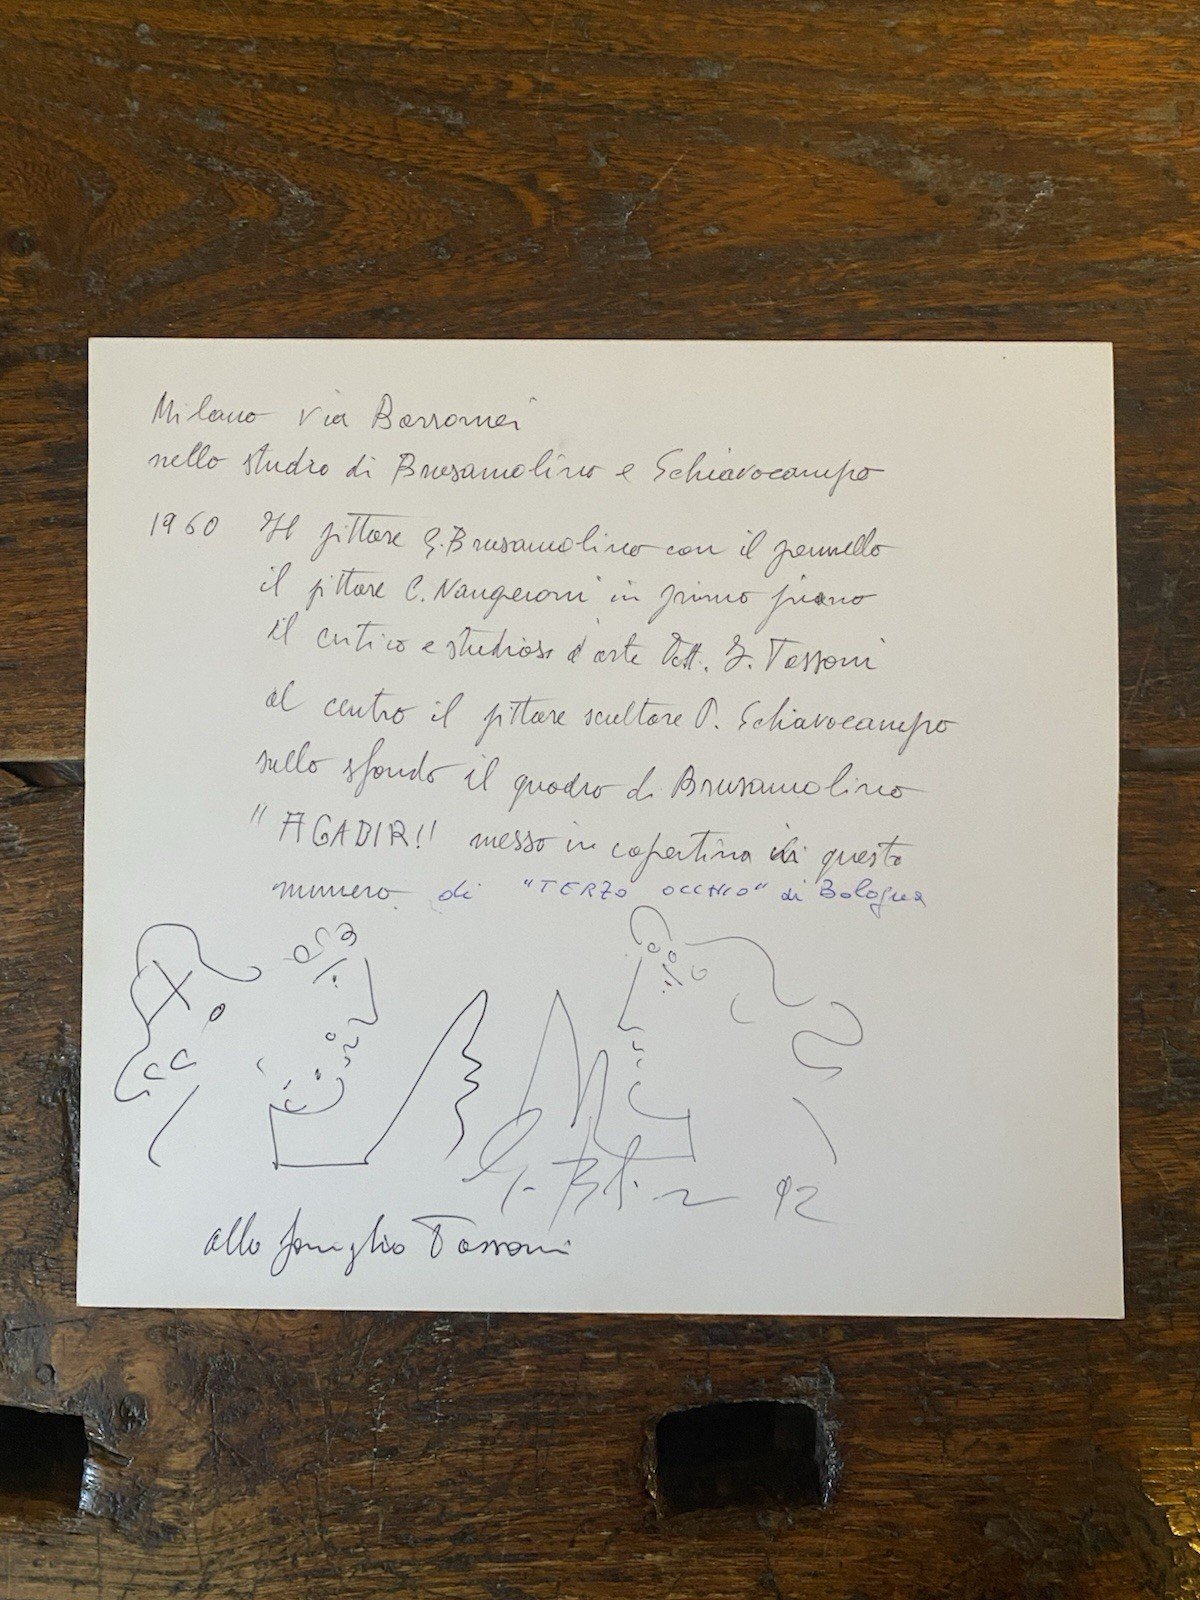 Milano via Borromei
nello studio di Brusamolino e Schiavocampo
1960 Il pittore G. Brusamolino con il pennello
il pittore C. Nangeroni in primo piano
il critico e studioso d'arte Dott. J. Tassoni
al centro il pittore scultore P. Schiavocampo
sullo sfondo il quadro di Brusamolino
"AGADIR!! messo in copertina di questo
numero di "TERZO OCCHIO" di Bologna
92
alla famiglia Tassoni